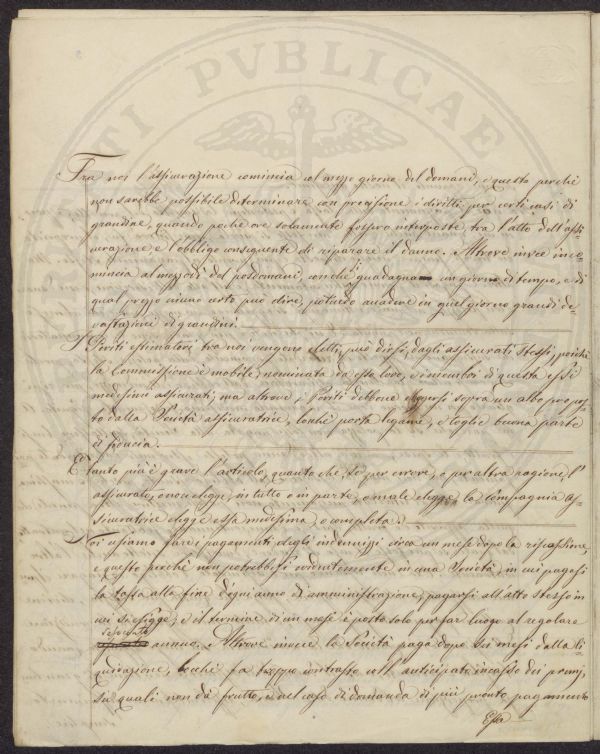 Fra noi l'assicurazione comincia col mezzo giorno del domani, e questo perchè
non sarebbe possibile determinare con precisione i diritti, per certi casi di
grandine, quando poche ore solamente fossero interposte, tra l'atto dell'assi-
curazione e l'obbligo conseguente di riparare il danno. Altrove invece inco-
mincia al mezzodì del posdomani, con che si guadagna un giorno di tempo, e di
qual prezzo niuno certo può dire, potendo accadere in quel giorno grandi de-
vastazioni di grandini.
I Periti estimatori tra noi vengono eletti, può dirsi, dagli assicurati stessi, poichè
la Commissione è mobile, nominata da essa loro, e i membri di questa essi
medesimi assicurati; ma altrove i Periti debbono eleggersi sopra un albo propos-
to dalla Società assicuratrice, locchè porta legame, e toglie buona parte
di fiducia.
E tanto più è grave l'articolo, quanto che, se per errore, o per altra ragione, l'
assicurato, o non elegge, in tutto o in parte, o male elegge, la compagnia as-
sicuratrice elegge essa medesima, o completa.
Noi usiamo fare i pagamenti degli indennizzi circa un mese dopo la riscossione,
e questo perchè non potrebbesi evidentemente in una Società, in cui pagasi
la tassa alla fine d'ogni anno di amministrazione, pagarsi all'atto stesso in
cui si esigge; e il termine di un mese è posto solo per far luogo al regolare
annuo. Altrove invece la Società paga dopo sei mesi dalla li-
quidazione, locchè fa troppo contrasto coll'anticipato incasso dei premj,
su quali non dà frutto, e nel caso di domanda di più pronto pagamento
Essa